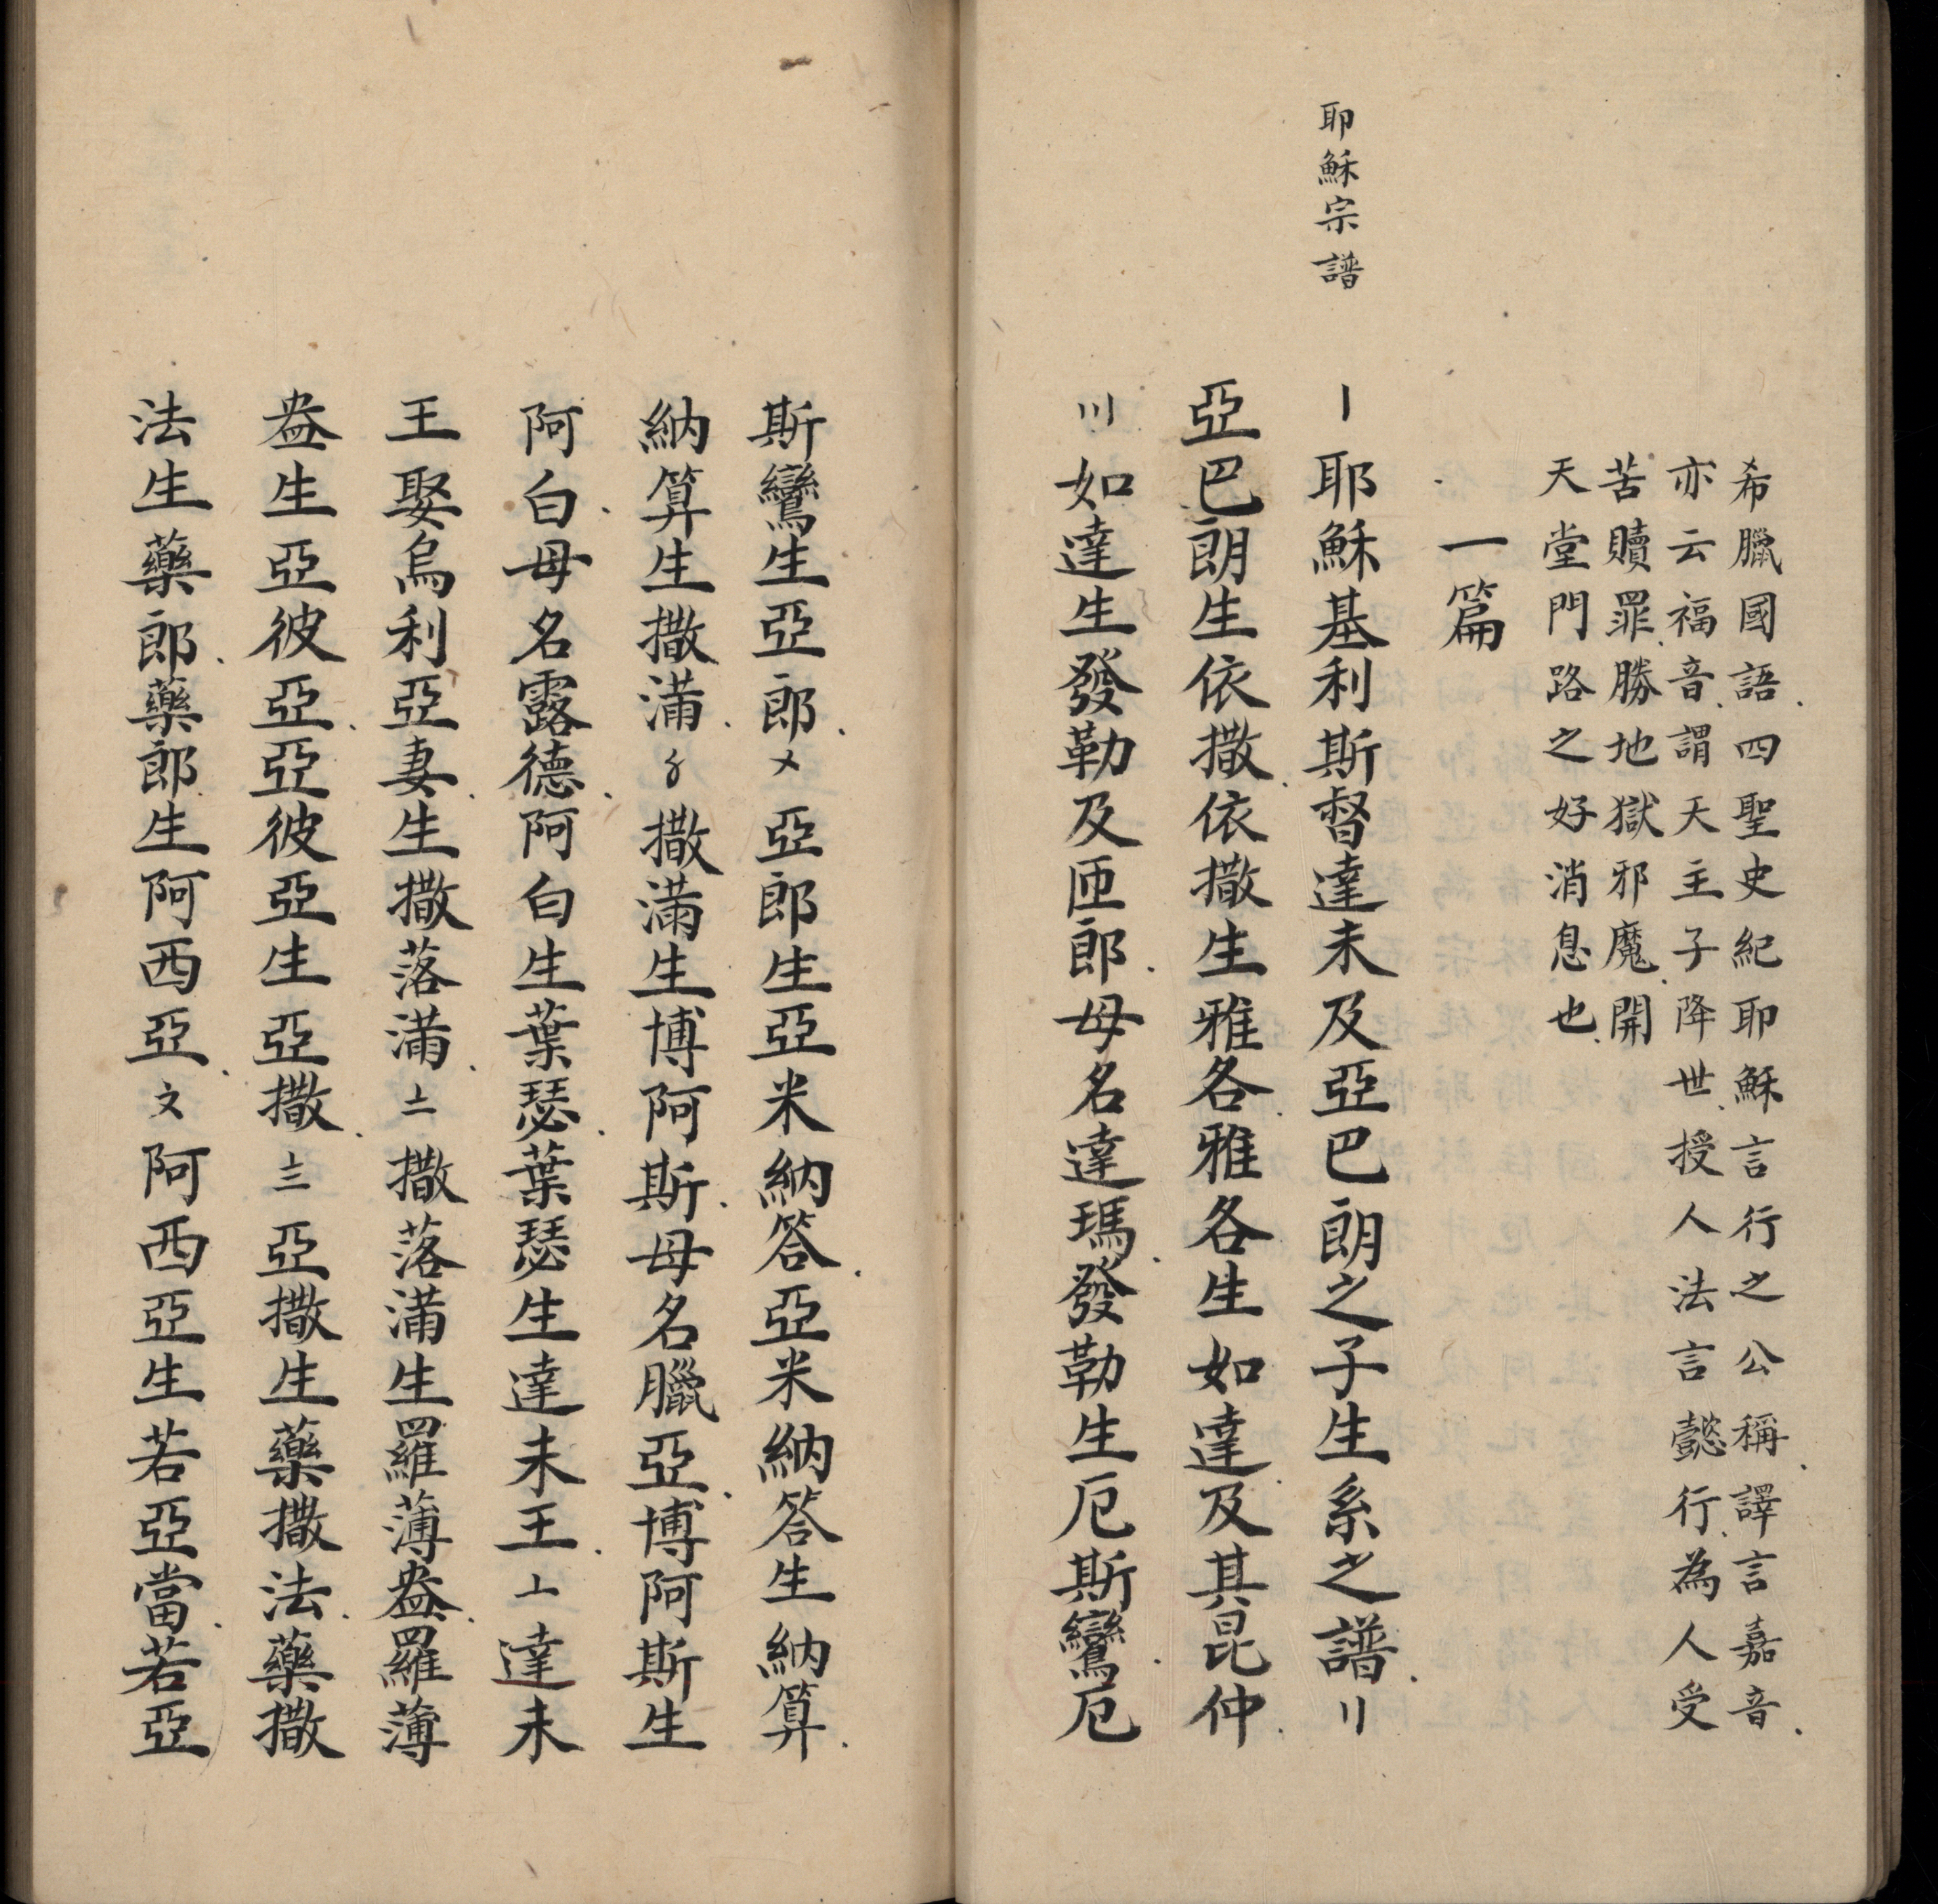 希臘國語四聖史紀耶穌言行之公稱譯言嘉音
亦云福音謂天主子降世授人法言懿行為人受
苦贖罪勝地獄邪魔開
天堂門路之好消息也
一篇
耶穌宗譜
〡耶穌基利斯督達未及亞巴朗之子生系之譜〢
亞巴朗生依撒依撒生雅各雅各生如達及其昆仲
〣如達生發勒及匝郎母名達瑪發勒生厄斯鸞厄
斯鸞生亞郎〤亞郎生亞米納答亞米納答生納算
納算生撒滿〥撒滿生博阿斯母名臘亞博阿斯生
阿白母名露德阿白生葉瑟葉瑟生達未王〦達未
王娶烏利亞妻生撒落滿〧撒落滿生羅薄盎羅薄
盎生亞彼亞亞彼亞生亞撒〨亞撒生藥撒法藥撒
法生藥郎藥郎生阿西亞〩阿西亞生若亞當若亞